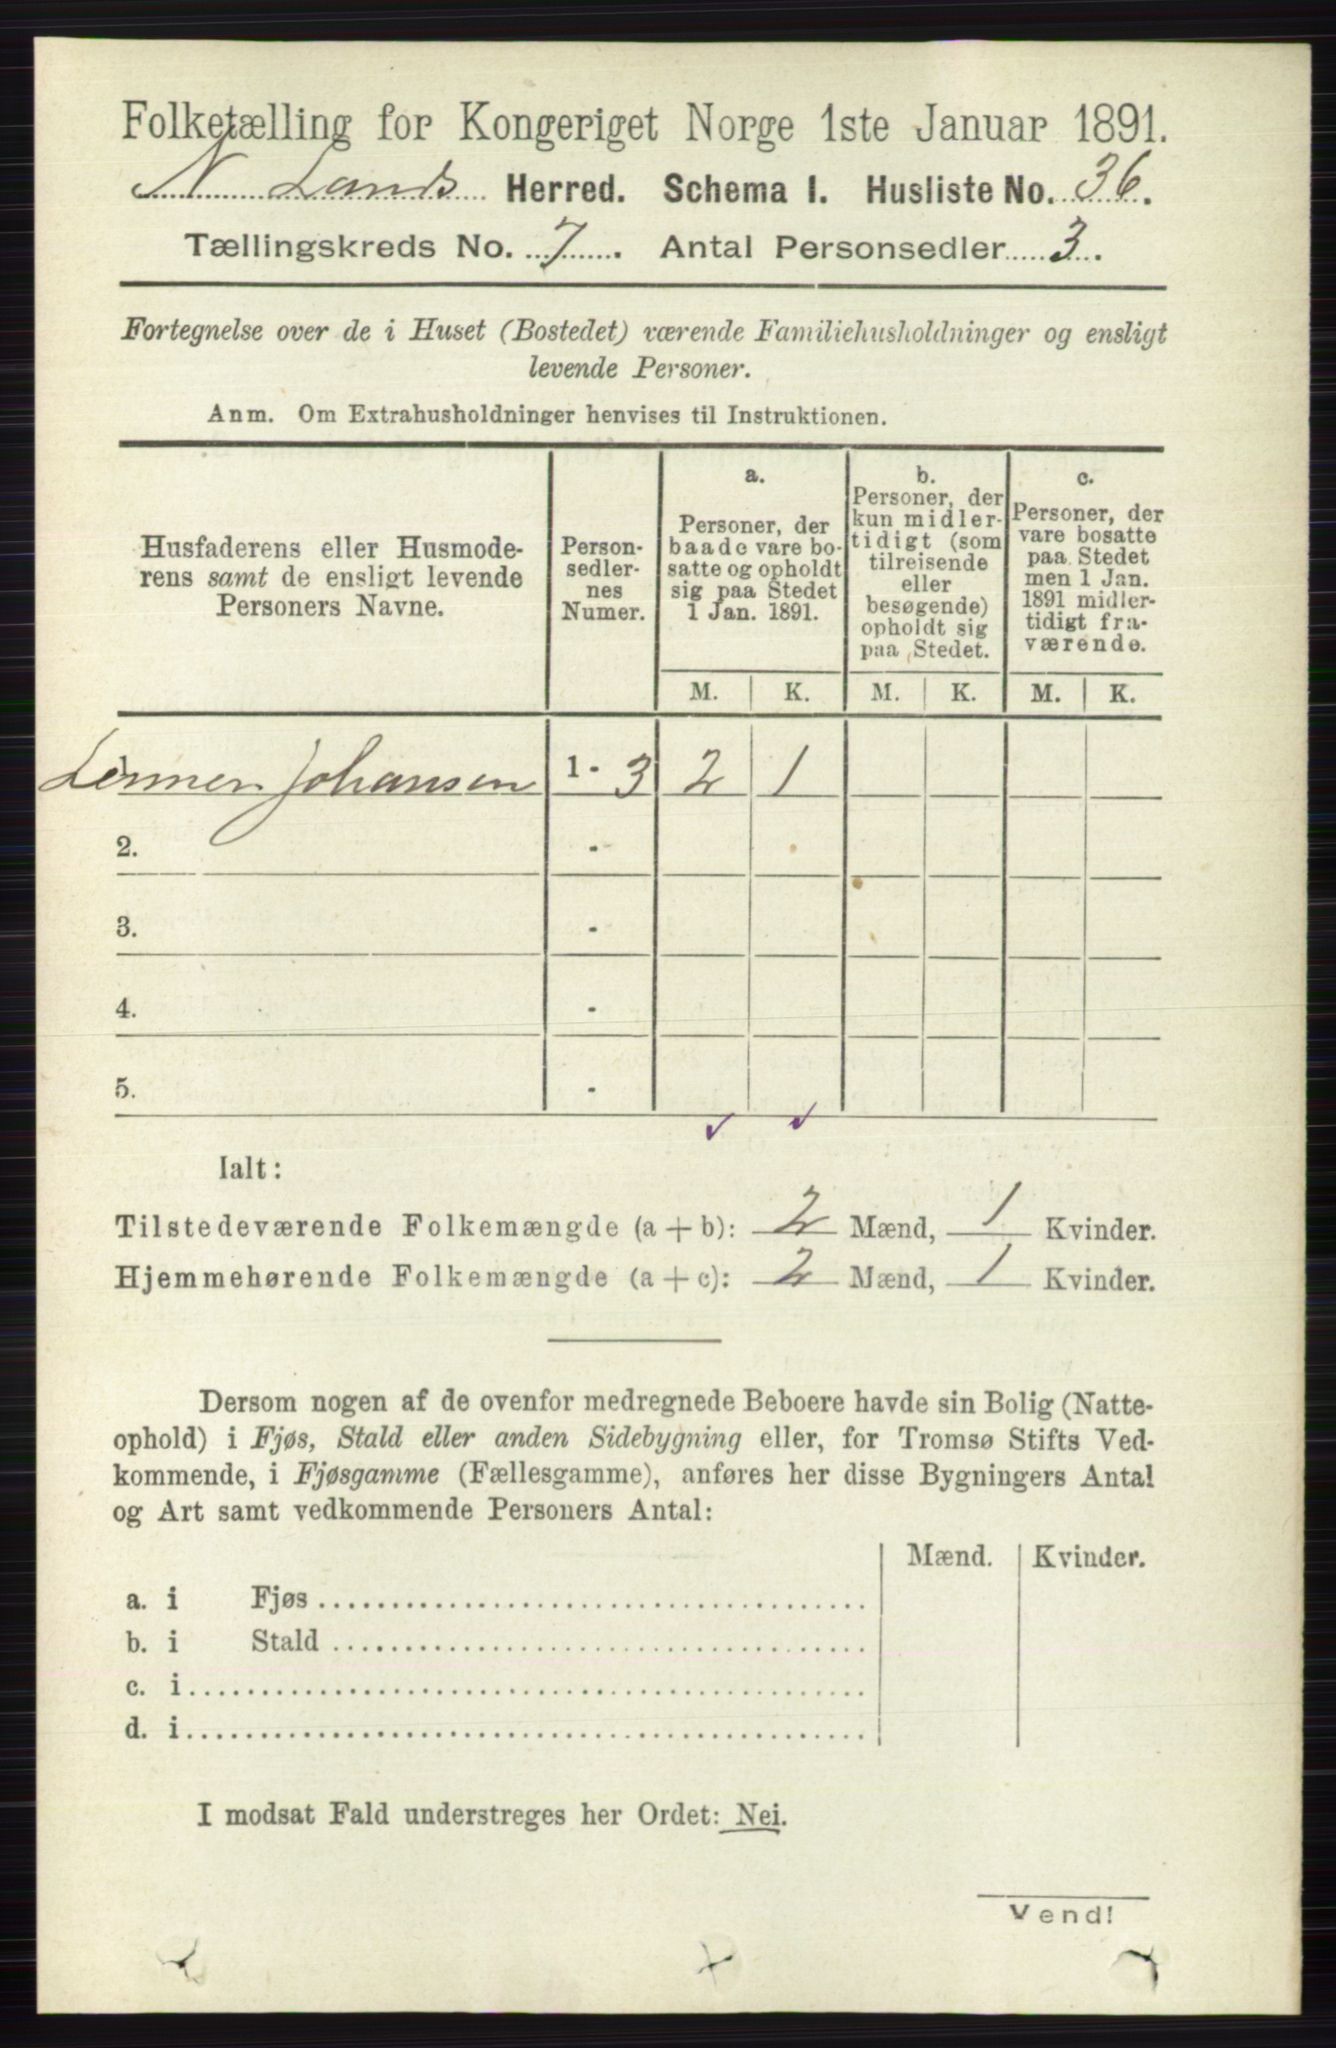 Folketælling for Kongeriget Norge 1ste Januar 1891.
N. Lands Herred. Schema I. Husliste No. 36.
Tællingskreds No. 7. Antal Personsedler 3.
Fortegnelse over de i Huset (Bostedet) værende Familiehusholdninger og ensligt
levende Personer.
Anm. Om Extrahusholdninger henvises til Instruktionen.
Husfaderens eller Husmode-
rens samt de ensligt levende
Personers Navne.
Person-
sedler-
nes
Numer.
a.
Personer, der
baade vare bo-
satte og opholdt
sig paa Stedet
1 Jan. 1891.
b.
Personer, der
kun midler-
tidigt (som
tilreisende
eller
besøgende)
opholdt sig
paa Stedet.
c.
Personer, der
vare bosatte
paa Stedet
men 1 Jan.
1891 midler-
tidigt fra-
værende.
M. K. M. K. M. K.
Johansen 1 - 3 2 1
2. -
3. -
4. -
5. -
Ialt:
Tilstedeværende Folkemængde (a + b): 2 Mænd, 1 Kvinder.
Hjemmehørende Folkemængde (a + c): 2 Mænd, 1 Kvinder.
Dersom nogen af de ovenfor medregnede Beboere havde sin Bolig (Natte-
ophold) i Fjøs, Stald eller anden Sidebygning eller, for Tromsø Stifts Ved-
kommende, i Fjøsgamme (Fællesgamme), anføres her disse Bygningers Antal
og Art samt vedkommende Personers Antal:
Mænd. Kvinder.
a. i Fjøs
b. i Stald
c. i
d. i
I modsat Fald understreges her Ordet: Nei.
Vend!